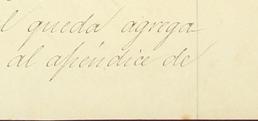 l queda agrega
al apéndice de